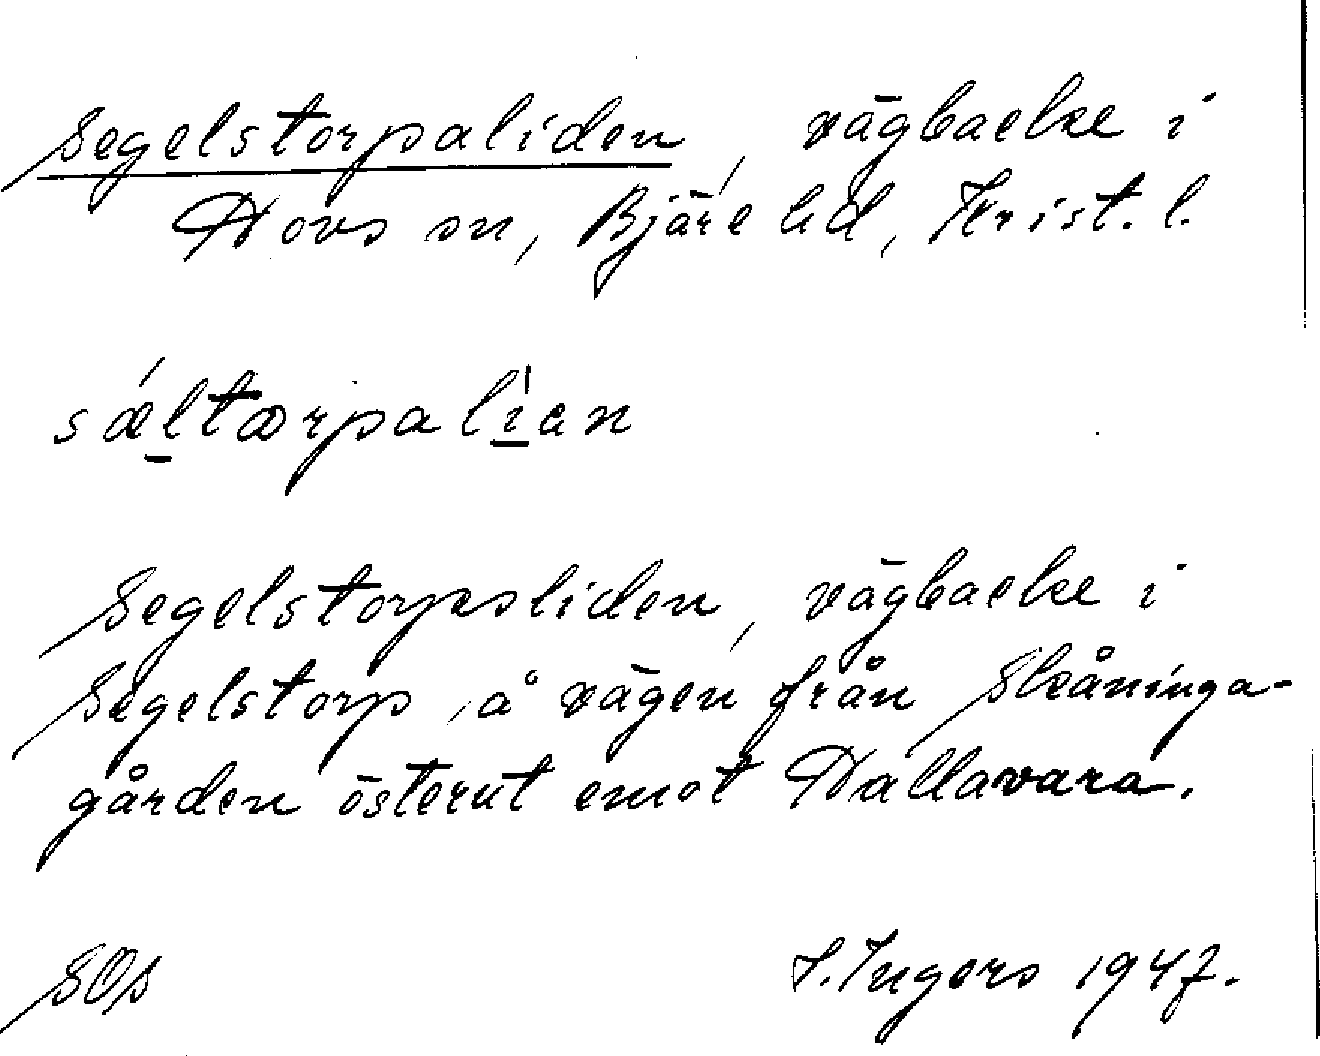 Segelstorpaliden, vägbacke i
Hovs sn, Bjäre hd, Krist. l.
sǽltærpalían
Segelstorpsliden, vägbacke i
Segelstorp, å vägen från Skåninga-
gården österut emot Hallavara.
SOS
I. Ingers 1947.